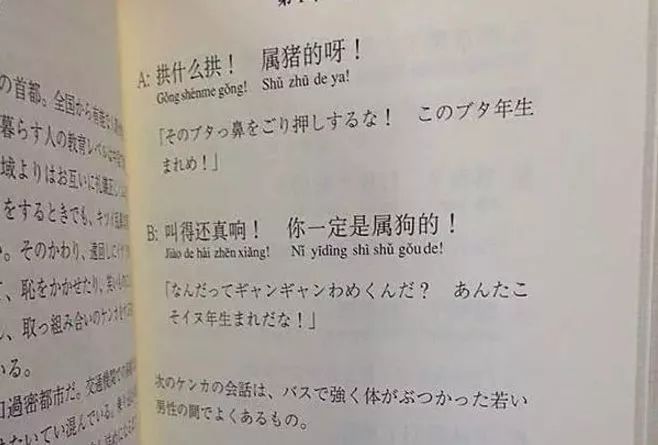 の首都。全国から有能な
暮らす人の教育レベルは
域よりはお互いに礼儀正し
をするときでも、キツイ
い。そのかわり、遠回しにイヤ
て、恥をかかせたり、笑いもの
ん、取っ組み合いのケンカ
いる。
口過密都市だ。交通機関
たいてい混んでいる。
A: 拱什么拱！ 属猪的呀！
Gǒng shénme gǒng! Shǔ zhū de ya!
「そのブタっ鼻をごり押しするな！ このブタ年生
まれめ！」
B: 叫得还真响！ 你一定是属狗的！
Jiào de hái zhēn xiǎng! Nǐ yídìng shì shǔ gǒu de!
「なんだってギャンギャンわめくんだ？ あんたこ
そイヌ年生まれだな！」
次のケンカの会話は、バスで強く体がぶつかった若い
男性の間でよくあるもの。